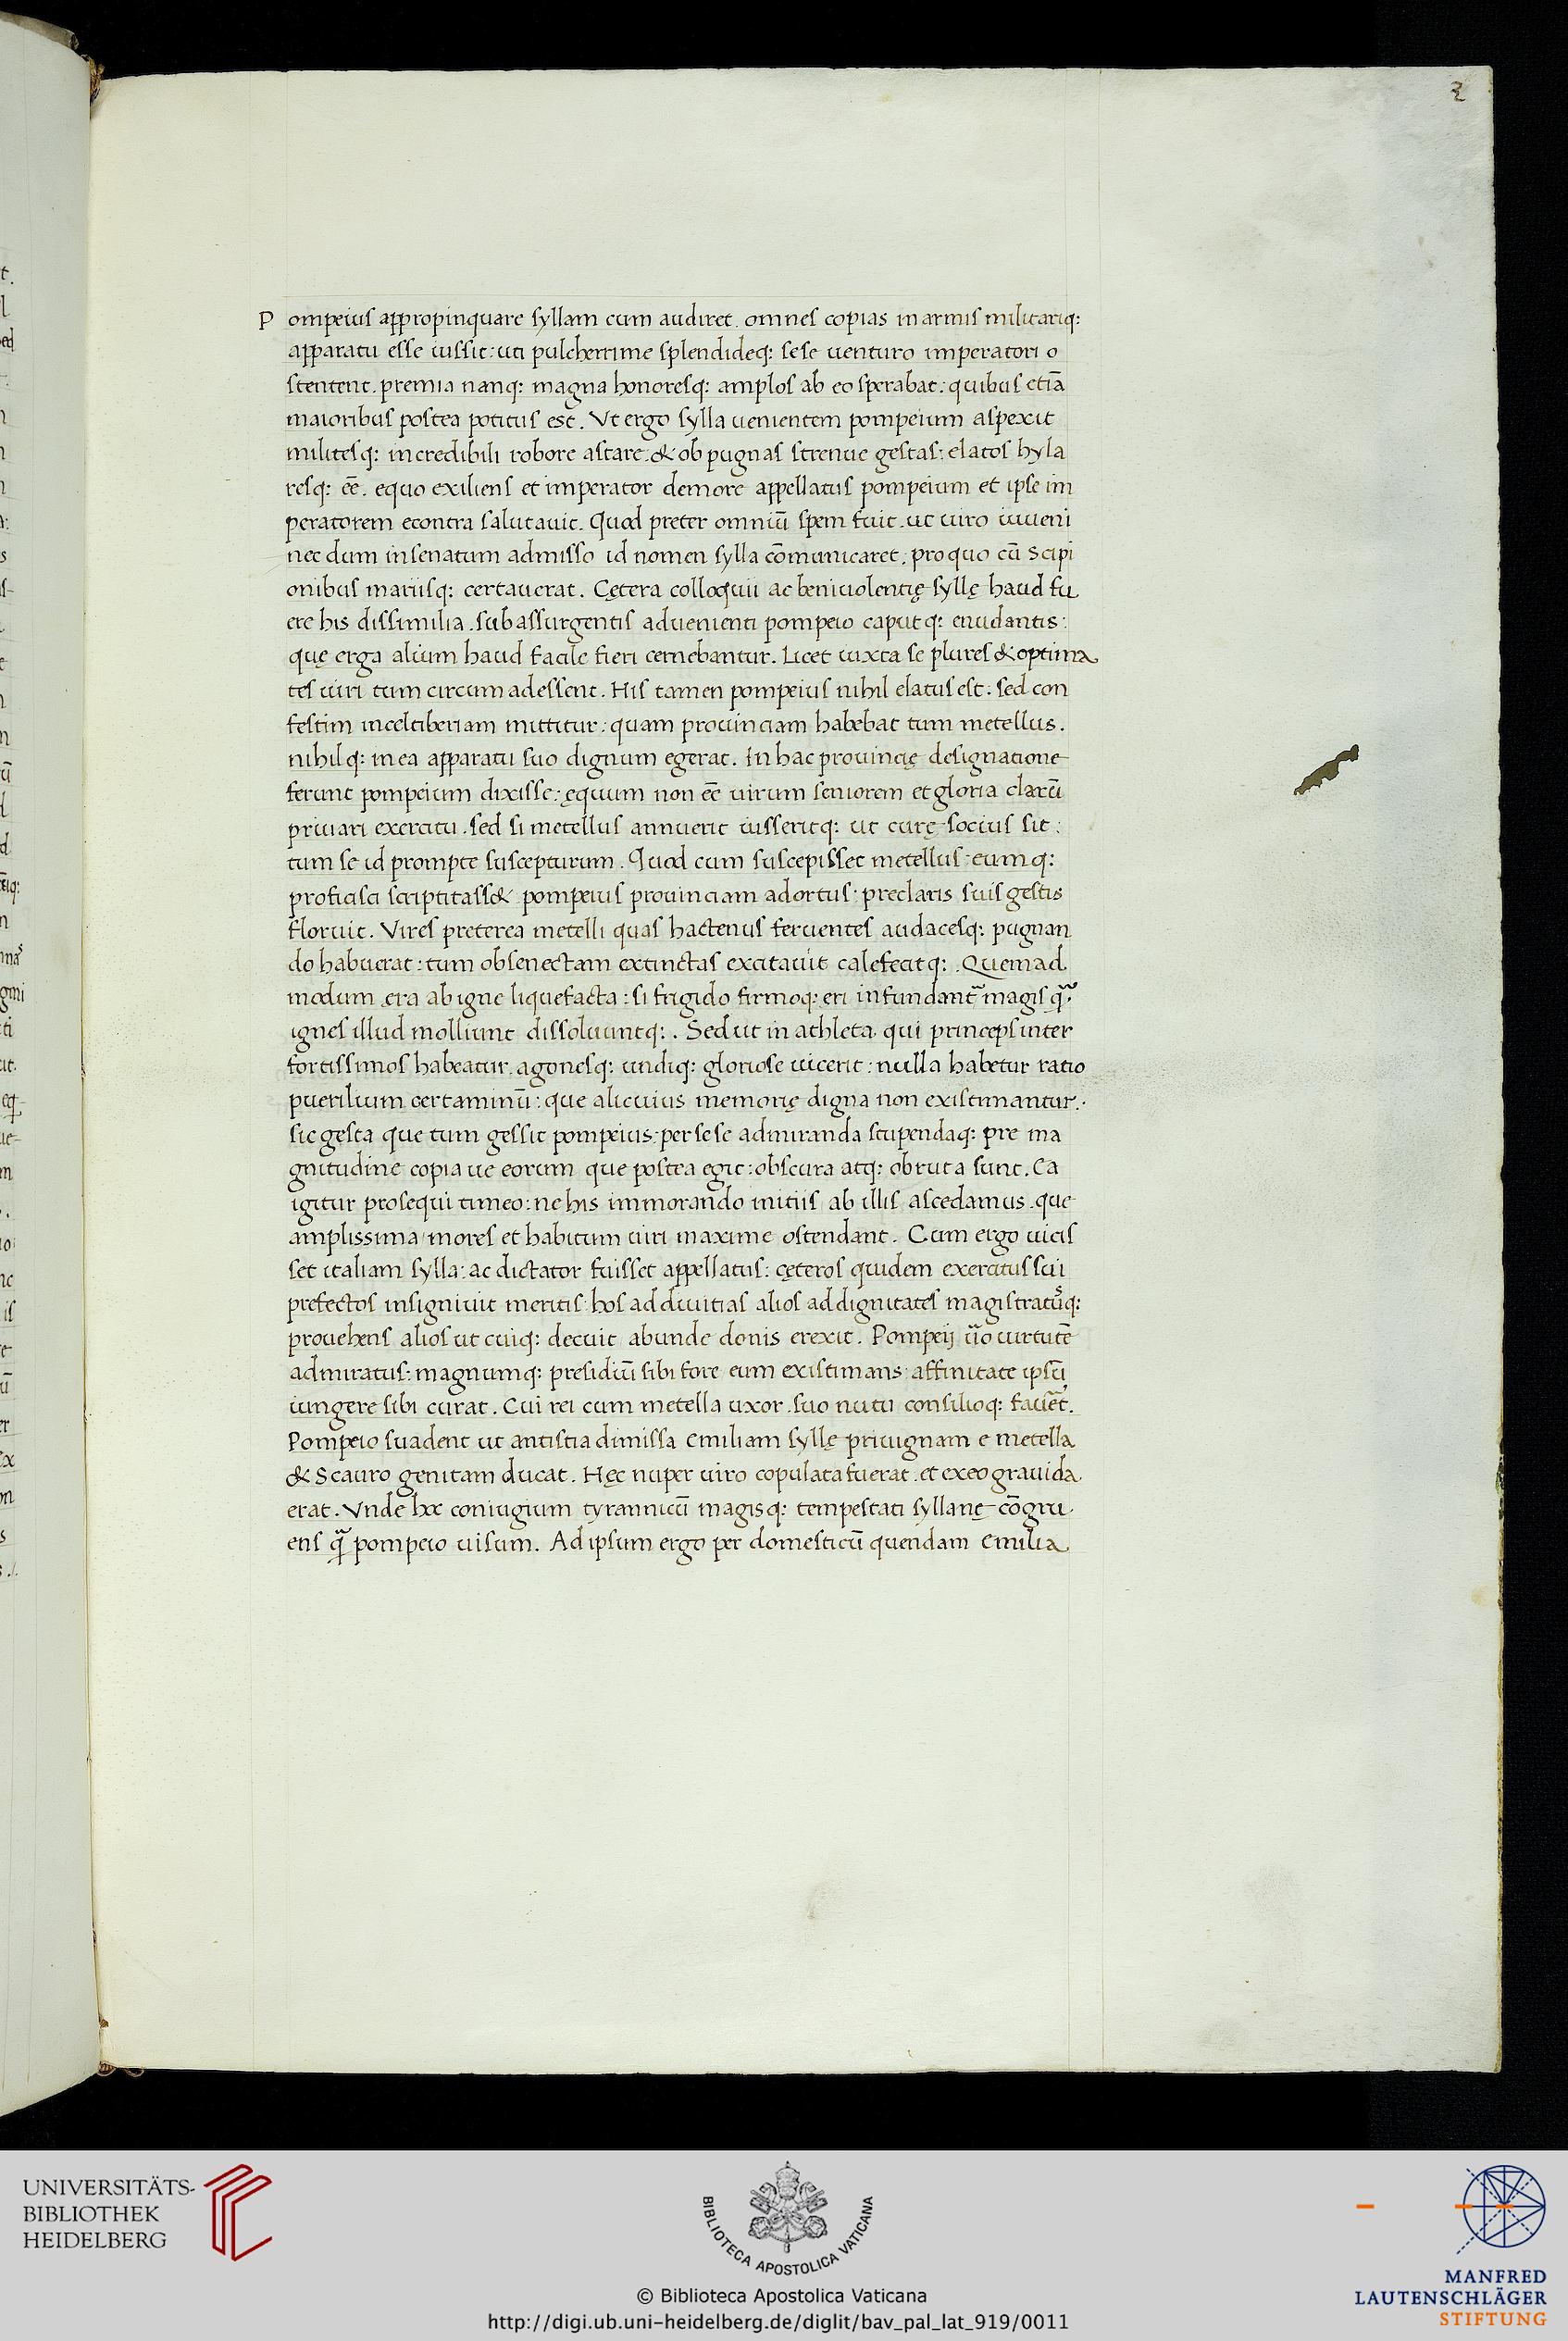 3
Pompeius appropinquare syllam cum audiret. omnes copias in armis militariq:
apparatu esse iussit: uti pulcherrime splendideq: sese uenturo imperatori o
stentent. premia nanq: magna honoresq: amplos ab eo sperabat: quibus etiā
maioribus postea potitus est. Vt ergo sylla uenientem pompeium aspexit
militesq: incredibili robore astare: & ob pugnas strenue gestas: elatos hyla
resq: eē. equo exiliens et imperator de more appellatus pompeium et ipse im
peratorem econtra salutauit. Quod preter omniū spem fuit. ut uiro iuueni
nec dum in senatum admisso id nomen sylla cōmunicaret: pro quo cū Scipi
onibus mariisq: certauerat. Cętera colloquii ac beniuolentię syllę haud fu
ere his dissimilia. sub assurgentis aduenienti pompeio caputq: enudantis:
quę erga alium haud facile fieri cernebantur. Licet iuxta se plures & optima
tes uiri tum circum adessent. His tamen pompeius nihil elatus est: sed con
festim in celtiberiam mittitur: quam prouinciam habebat tum metellus.
nihilq: in ea apparatu suo dignum egerat. In hac prouincię designatione
ferunt pompeium dixisse: ęquum non eē uirum seniorem et gloria clarū
priuari exercitu. sed si metellus annuerit iusseritq: ut curę socius sit:
tum se id prompte suscepturum. Quod cum suscepisset metellus: eumq:
proficisci scriptitass&: pompeius prouinciam adortus: preclaris suis gestis
floruit. Vires preterea metelli quas hactenus feruentes audacesq: pugnan
do habuerat: tum ob senectam extinctas excitauit calefecitq:. Quemad
modum ęra ab igne liquefacta: si frigido firmoq: eri infundant᷑ magis q̄
ignes illud molliunt dissoluuntq:. Sed ut in athleta qui princeps inter
fortissimos habeatur. agonesq: undiq: gloriose uicerit: nulla habetur ratio
puerilium certaminū: que alicuius memorię digna non existimantur.
sic gesta que tum gessit pompeius: per se se admiranda stupendaq: pre ma
gnitudine copia ue eorum que postea egit: obscura atq: obruta sunt. Ea
igitur prosequi timeo: ne his immorando initiis ab illis ascedamus. que
amplissima mores et habitum uiri maxime ostendant. Cum ergo uicis
set italiam sylla: ac dictator fuisset appellatus: cęteros quidem exercitus sui
prefectos insigniuit meritis: hos ad diuitias alios ad dignitates magistratusq:
prouehens alios ut cuiq: decuit abunde donis erexit. Pompeij ūo uirtutē
admiratus: magnumq: presidiū sibi fore eum existimans: affinitate ipsū
iungere sibi curat. Cui rei cum metella uxor. suo nutu consilioq: fauēt.
Pompeio suadent ut antistia dimissa emiliam syllę priuignam e metella
& Scauro genitam ducat. Hęc nuper uiro copulata fuerat. et ex eo grauida
erat. Vnde hoc coniugium tyrannicū magisq: tempestati syllanę cōgru
ens q̄ pompeio uisum. Ad ipsum ergo per domesticū quendam emilia
UNIVERSITÄTS-
BIBLIOTHEK
HEIDELBERG
BIBLIOTECA APOSTOLICA VATICANA
© Biblioteca Apostolica Vaticana
http://digi.ub.uni-heidelberg.de/diglit/bav_pal_lat_919/0011
MANFRED
LAUTENSCHLÄGER
STIFTUNG